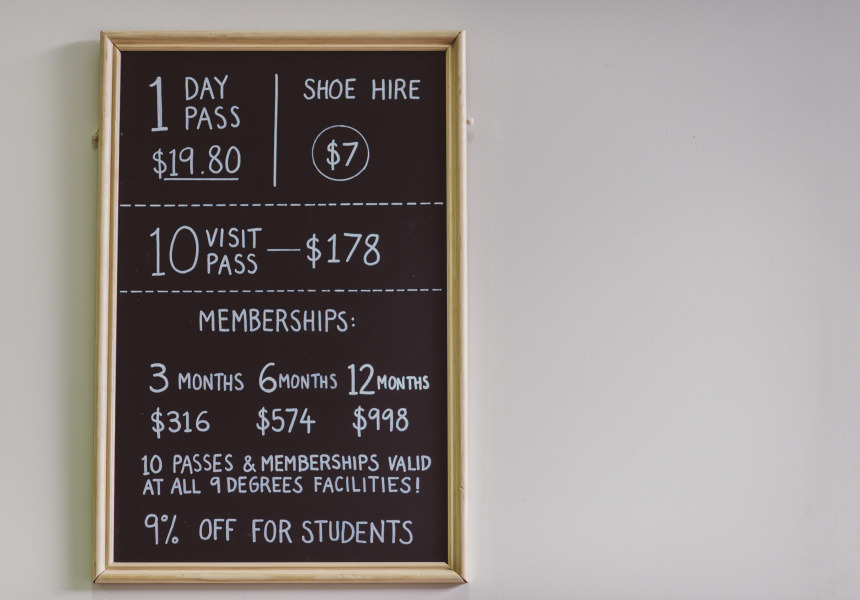 1 DAY PASS
$19.80
SHOE HIRE
$7
10 VISIT PASS — $178
MEMBERSHIPS:
3 MONTHS 6 MONTHS 12 MONTHS
$316 $574 $998
10 PASSES & MEMBERSHIPS VALID
AT ALL 9 DEGREES FACILITIES!
9% OFF FOR STUDENTS